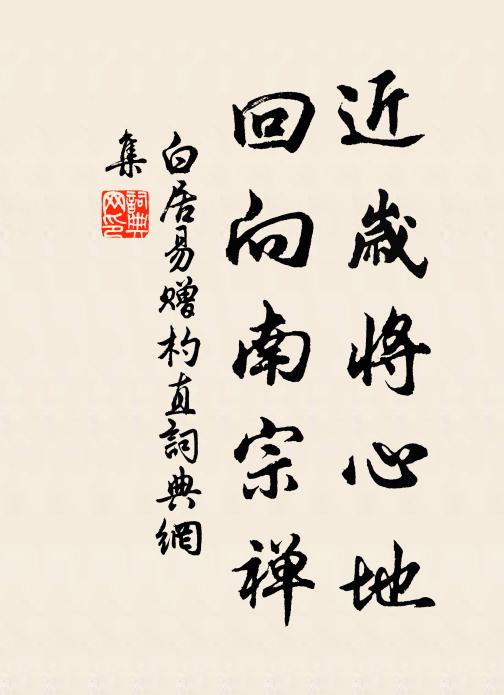 近歲將心地
回向南宗禅
白居易赠杓直詞典網
集
詞典
网印